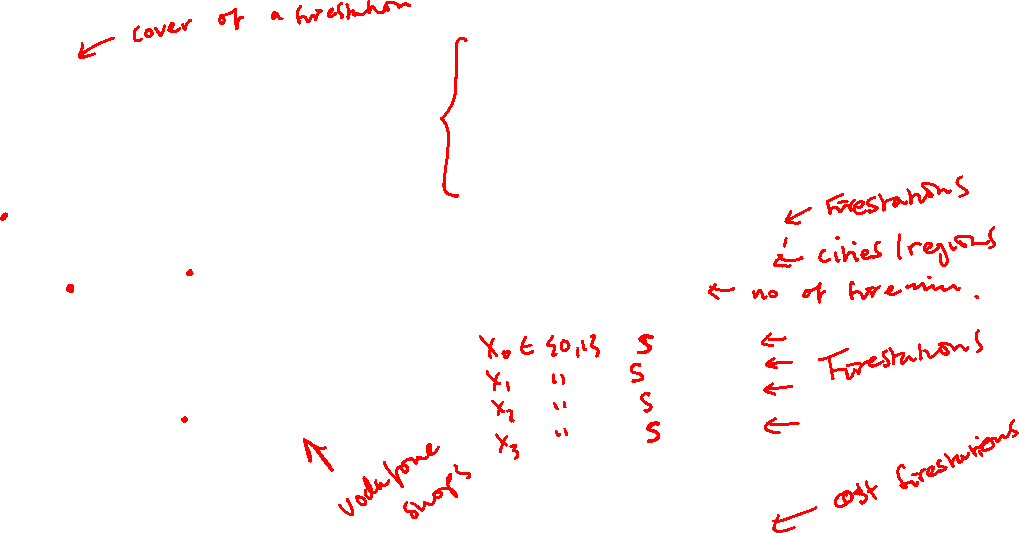 ← cover of a firestation
← Firestations
← cities/regions
← no of firemin.
x₀ ∈ {0,1} S ←
x₁ " S ← Firestations
x₂ " S ←
x₃ " S ←
vodafone
shops
← cost firestations